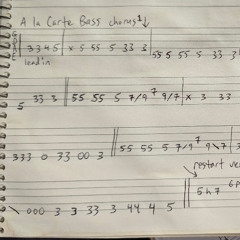 A la Carte Bass chorus 1↓
3 3 4 5 x 5 55 5 33 3 55 5 55 5 33 3
lead in
5 33 3 55 55 5 7/9 7 9/7 x 3 33
333 0 33 00 3 55 55 5 7/9 7 9\7 3
restart ve
\ 000 3 3 33 3 44 4 5 5h7 6p